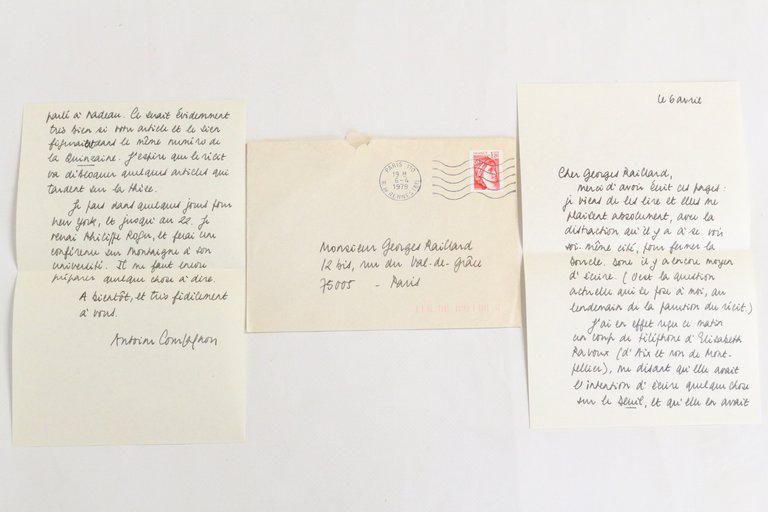 le 6 avril
Cher Georges Raillard,
merci d'avoir écrit ces pages :
je viens de les lire et elles me
plaisent absolument, avec la
distraction qu'il y a à se voir
soi-même cité, pour fermer la
boucle. Donc il y a encore moyen
d'écrire. (C'est la question
actuelle qui se pose à moi, au
lendemain de la parution du récit.)
J'ai en effet reçu ce matin
un coup de téléphone d'Elisabeth
Ravoux (d'Aix et non de Mont-
pellier), me disant qu'elle avait
l'intention d'écrire quelque chose
sur le Seuil, et qu'elle en avait
parlé à Nadeau. Ce serait évidemment
très bien si votre article et le sien
figuraient dans le même numéro de
la Quinzaine. J'espère que le récit
va débloquer quelques articles qui
tardent sur la thèse.
Je pars dans quelques jours pour
New York, et jusqu'au 22. Je
verrai Philippe Roger, et ferai une
conférence sur Montaigne à son
université. Il me faut encore
préparer quelque chose à dire.
A bientôt, et très fidèlement
à vous.
Antoine Compagnon
PARIS 110
19 H
6-4
1979
R. DE RENNES (6E)
FRANCE
1,20
Monsieur Georges Raillard
12 bis, rue du Val-de-Grâce
75005 - Paris